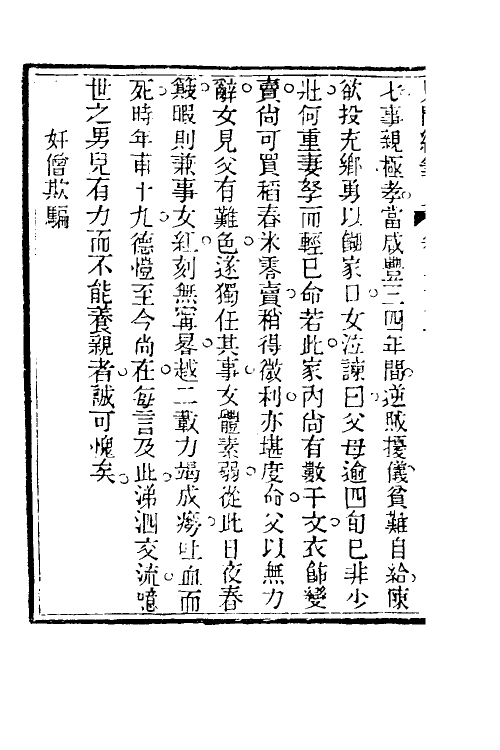 七事親極孝當咸豐三四年間逆賊擾儀貧難自給陳
欲投充鄉勇以餬家口女泣諫曰父母逾四旬已非少
壯何重妻孥而輕已命若此家內尚有數千文衣飾變
賣尚可買稻舂米零賣稍得微利亦堪度命父以無力
辭女見父有難色遂獨任其事女體素弱從此日夜舂
簸暇則兼事女紅刻無寧晷越二載力竭成癆吐血而
死時年甫十九德愷至今尚在每言及此涕泗交流噫
世之男兒有力而不能養親者誠可愧矣
奸僧欺騙